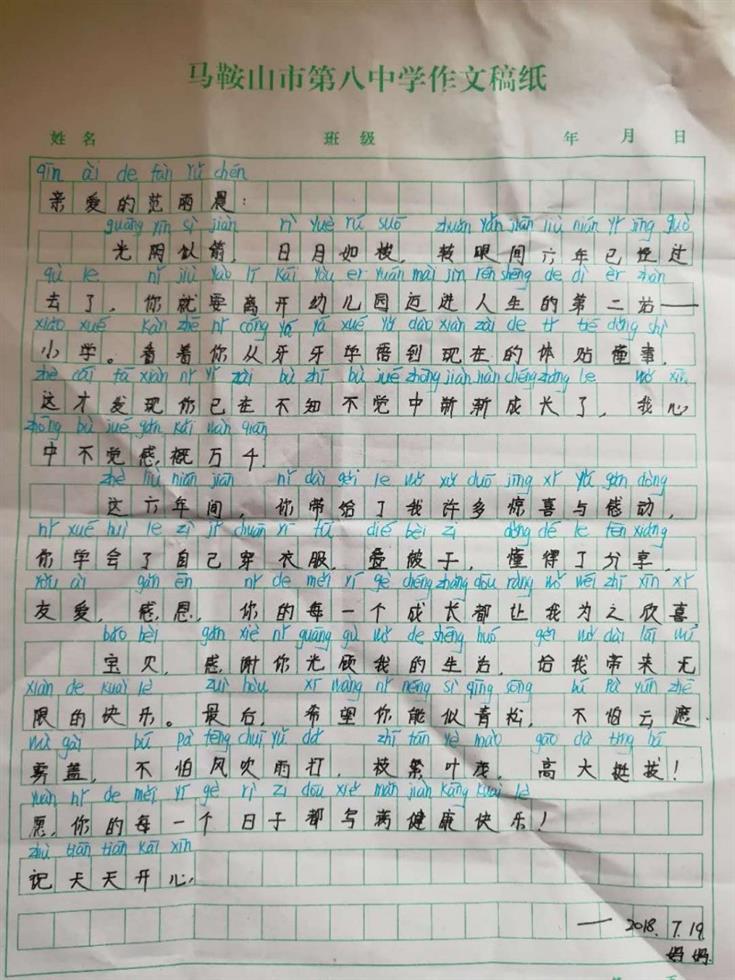 马鞍山市第八中学作文稿纸
姓名 班级 年 月 日
qīn ài de fàn yǔ chén
亲爱的范雨晨:
guāng yīn sì jiàn rì yuè rú suō zhuǎn yǎn jiān liù nián yǐ jīng guò
光阴似箭，日月如梭，转眼间六年已经过
qù le nǐ jiù yào lí kāi yòu ér yuán mài jìn rén shēng de dì èr zhàn
去了，你就要离开幼儿园迈进人生的第二站——
xiǎo xué kàn zhe nǐ cóng yá yá xué yǔ dào xiàn zài de tǐ tiē dǒng shì
小学。看着你从牙牙学语到现在的体贴懂事，
zhè cái fā xiàn nǐ yǐ zài bù zhī bù jué zhōng jiàn jiàn chéng zhǎng le wǒ xīn
这才发现你已在不知不觉中渐渐成长了，我心
zhōng bù jué gǎn kǎi wàn qiān
中不觉感概万千
zhè liù nián jiān nǐ dài gěi le wǒ xǔ duō jīng xǐ yǔ gǎn dòng
这六年间，你带给了我许多惊喜与感动，
nǐ xué huì le zì jǐ chuān yī fú dié bèi zi dǒng dé le fēn xiǎng
你学会了自己穿衣服，叠被子，懂得了分享，
yǒu ài gǎn ēn nǐ de měi yí gè chéng zhǎng dōu ràng wǒ wéi zhī xīn xǐ
友爱，感恩，你的每一个成长都让我为之欣喜
bǎo bèi gǎn xiè nǐ guāng gù wǒ de shēng huó gěi wǒ dài lái wú
宝贝，感谢你光顾我的生活，给我带来无
xiàn de kuài lè zuì hòu xī wàng nǐ néng sì qīng sōng bú pà yún zhē
限的快乐。最后，希望你能似青松，不怕云遮
wù gài bú pà fēng chuī yǔ dǎ zhī fán yè mào gāo dà tǐng bá
雾盖，不怕风吹雨打，枝繁叶茂，高大挺拔！
yuàn nǐ de měi yí gè rì zi dōu xiě mǎn jiàn kāng kuài lè
愿，你的每一个日子都写满健康快乐！
zhù tiān tiān kāi xīn
祝天天开心，
—— 2018.7.19.
妈妈.